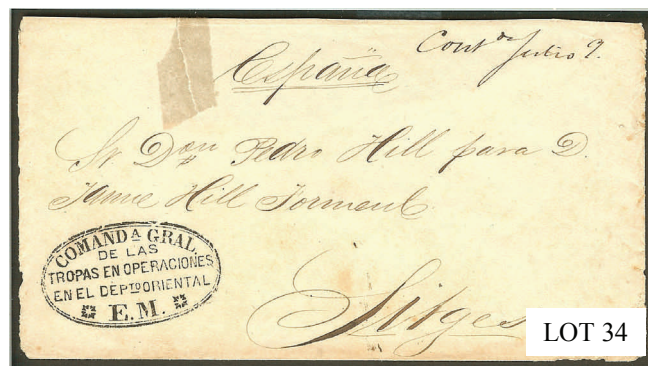 España
Contda Julio 9.
Sr Don Pedro Hill para D.
Jaime Hill Torment
Sitges
COMANDA GRAL
DE LAS
TROPAS EN OPERACIONES
EN EL DEPTO ORIENTAL
E.M.
LOT 34